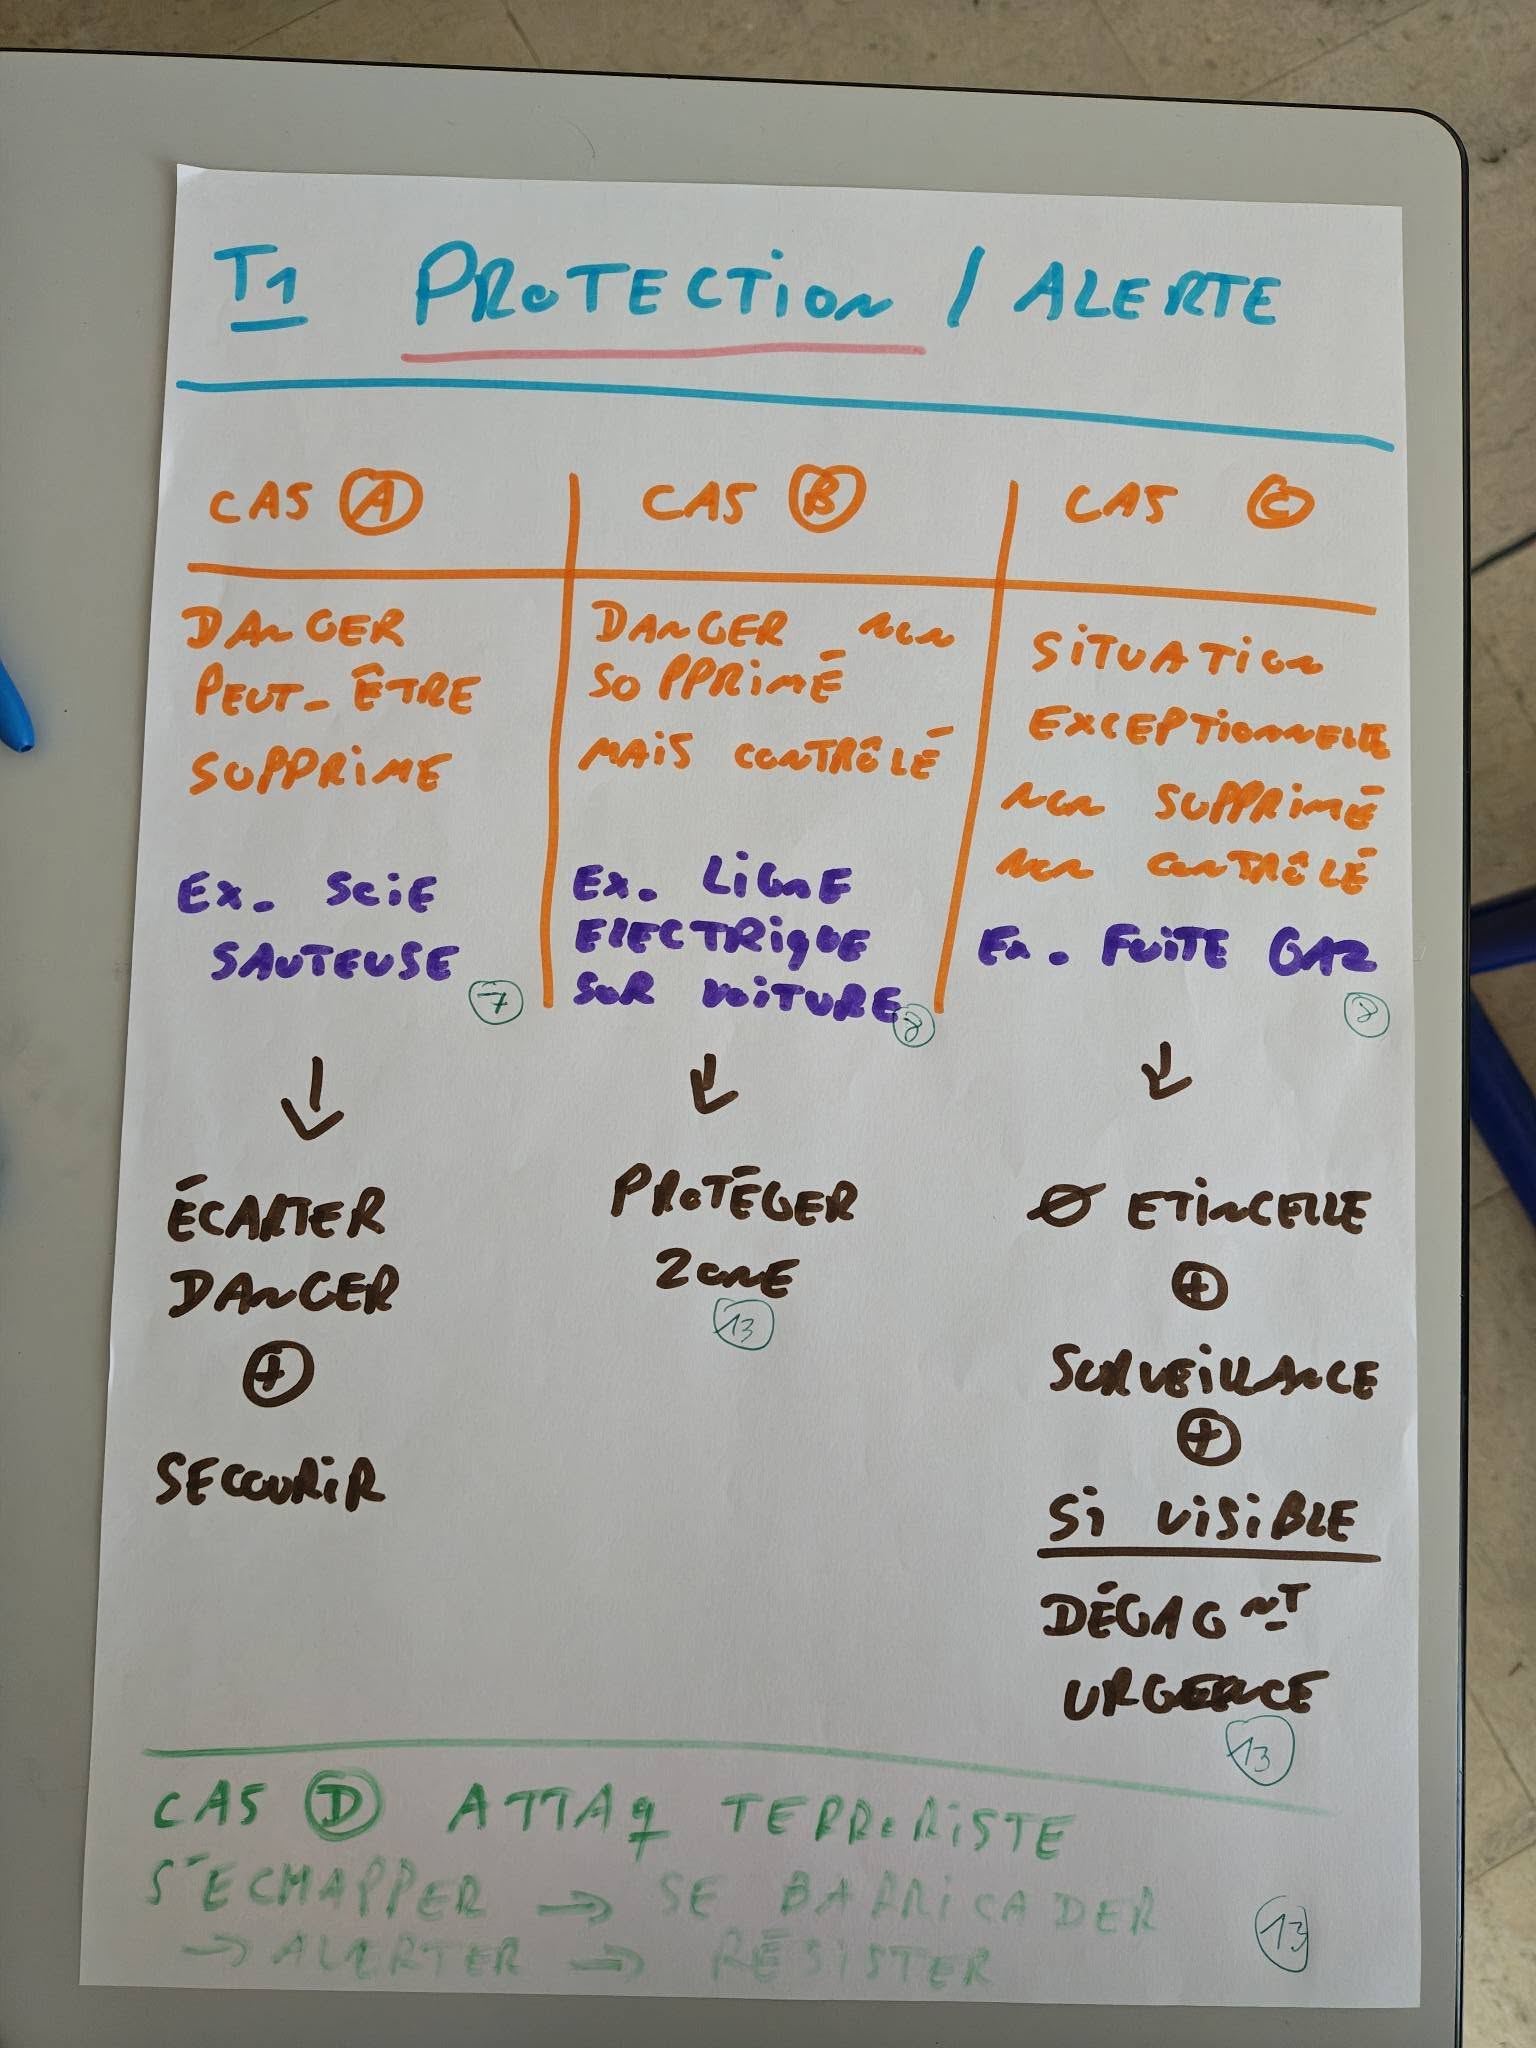 T1 PROTECTION / ALERTE
CAS A
DANGER
PEUT-ÊTRE
SUPPRIME
Ex. SCIE
SAUTEUSE
7
ÉCARTER
DANGER
+
SECOURIR
CAS B
DANGER NON
SUPPRIMÉ
MAIS CONTRÔLÉ
Ex. LIGNE
ELECTRIQUE
SUR VOITURE
8
PROTÉGER
ZONE
13
CAS C
SITUATION
EXCEPTIONNELLE
NON SUPPRIMÉ
NON CONTRÔLÉ
Ex. FUITE GAZ
8
Ø ETINCELLE
+
SURVEILLANCE
+
SI VISIBLE
DÉGAGNT
URGENCE
13
CAS D ATTAQ TERRORISTE
S'ECHAPPER → SE BARRICADER
→ ALERTER → RÉSISTER
13